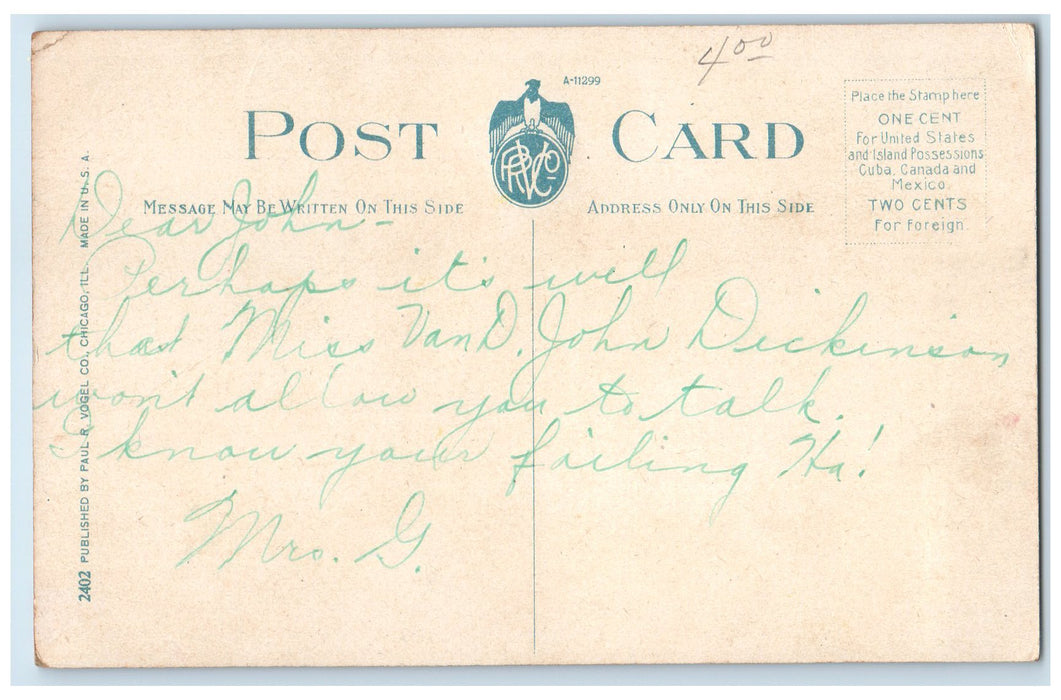 4 00
A-11299
POST CARD
PRVCo
MESSAGE MAY BE WRITTEN ON THIS SIDE
ADDRESS ONLY ON THIS SIDE
Place the Stamp here
ONE CENT
For United States
and Island Possessions
Cuba, Canada and
Mexico.
TWO CENTS
For Foreign.
Dear John -
Perhaps it's well
that Miss Van D. John Dickinson
won't allow you to talk.
I know your failing Ha!
Mrs. G.
2402 PUBLISHED BY PAUL R. VOGEL CO., CHICAGO, ILL. MADE IN U. S. A.